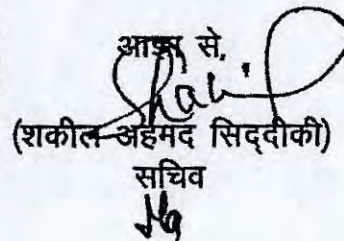 आज्ञा से,
(शकील अहमद सिद्दीकी)
सचिव